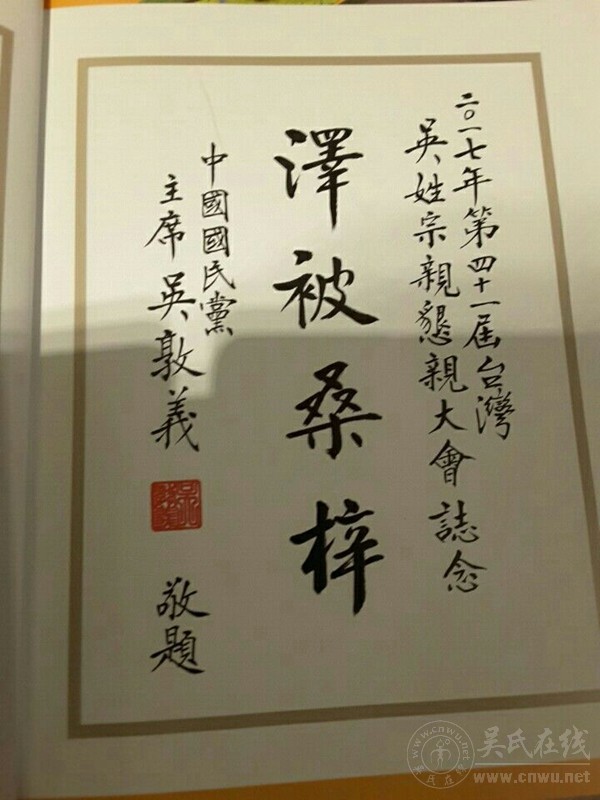 二〇一七年第四十一屆台灣
吳姓宗親懇親大會誌念
澤被桑梓
中國國民黨
主席吳敦義
敬題
吴氏在线
www.cnwu.net